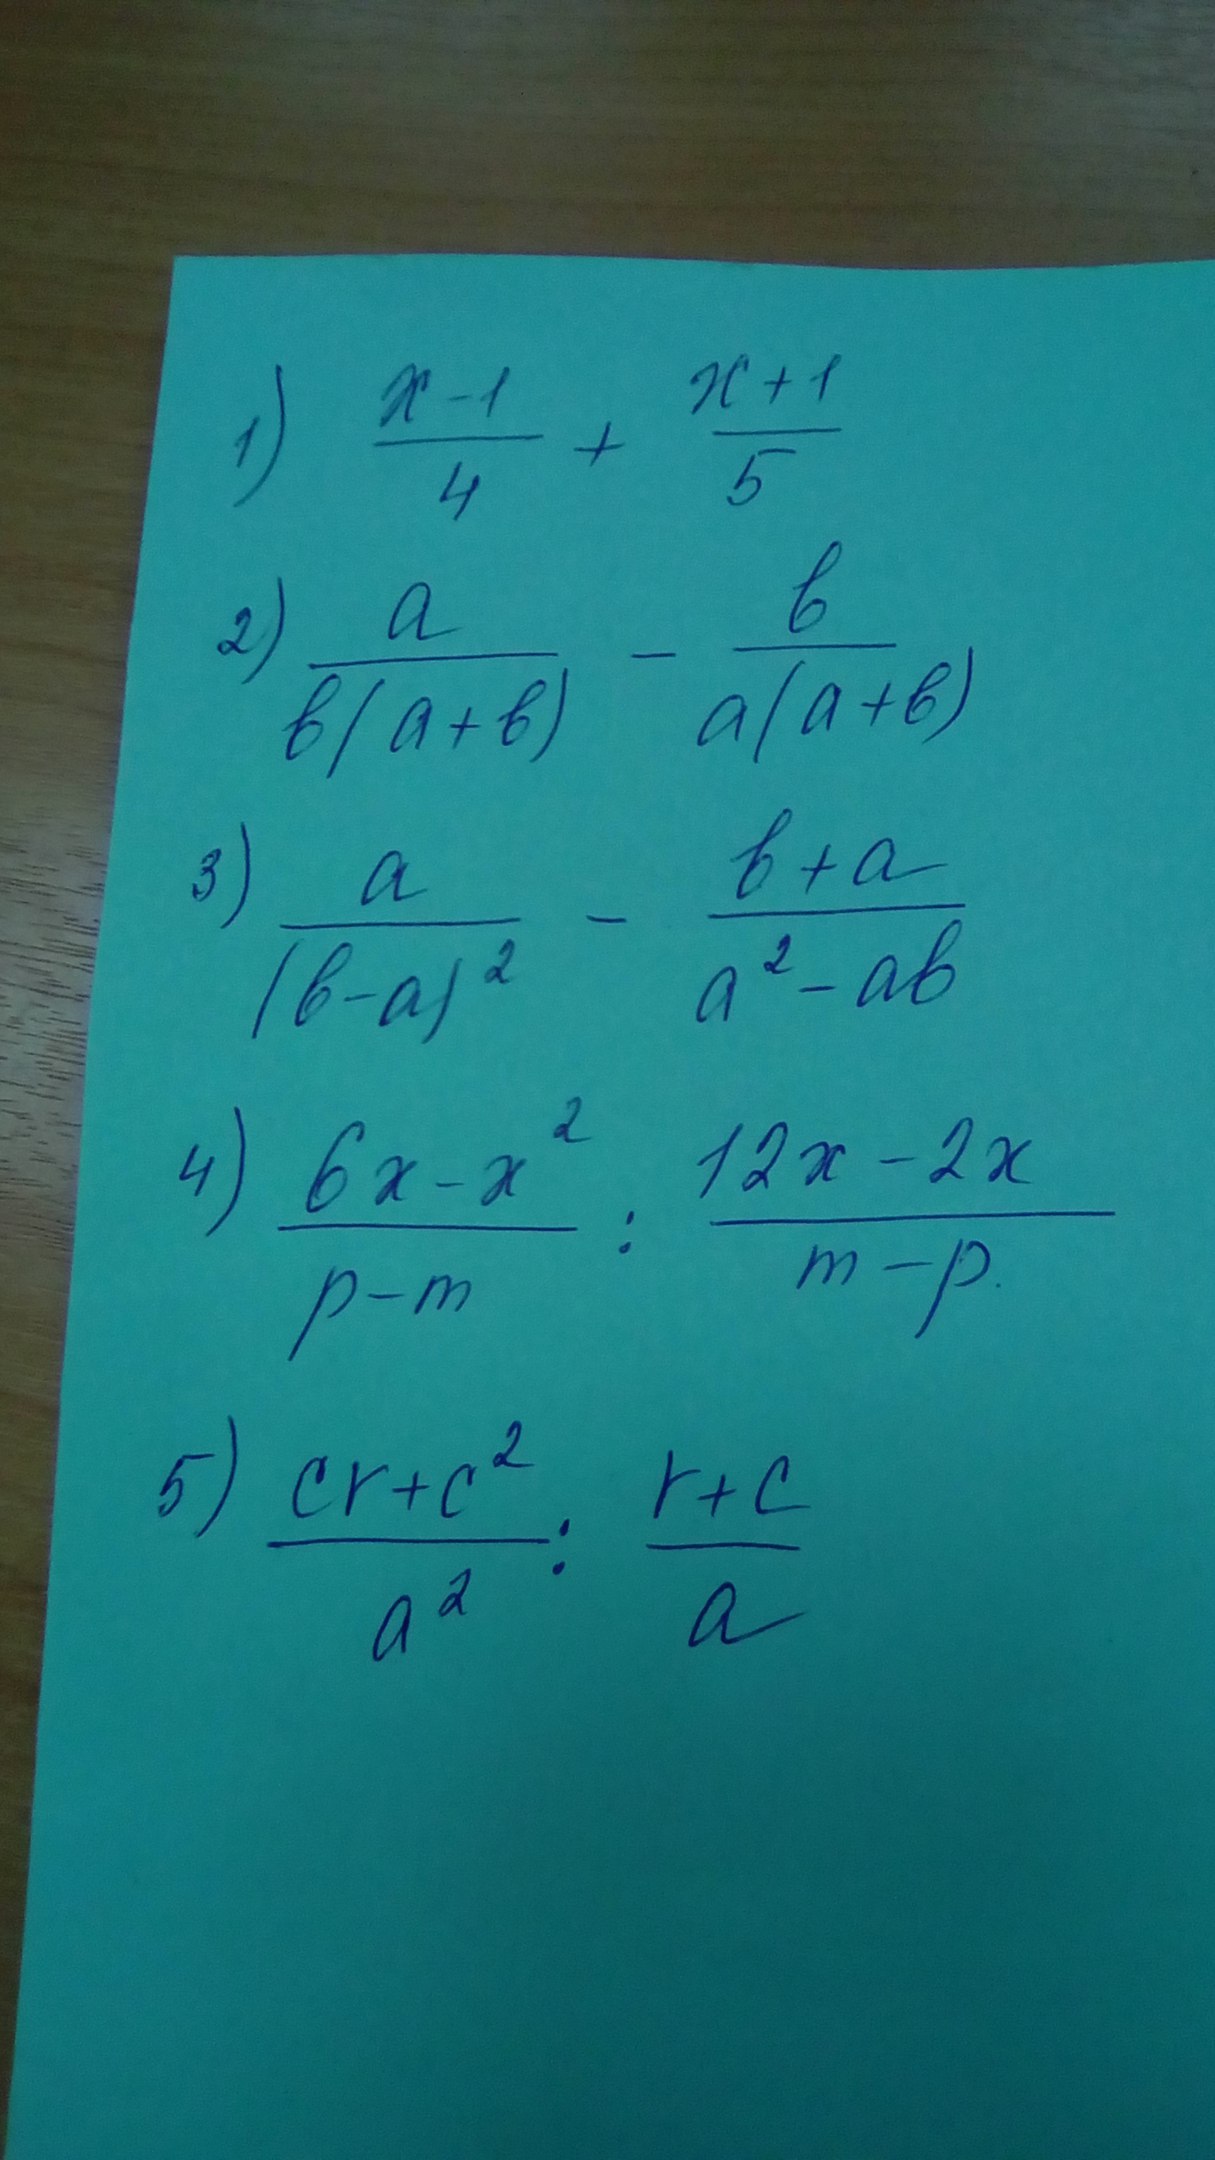 1) (x-1)/4 + (x+1)/5
2) a/(в(a+в)) - в/(a(a+в))
3) a/(в-a)² - (в+a)/(a²-aв)
4) (6x-x²)/(p-m) : (12x-2x)/(m-p)
5) (cr+c²)/a² : (r+c)/a